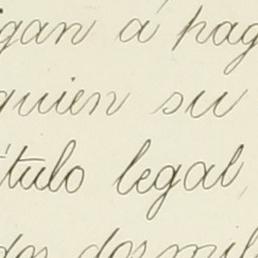 igan á pag
quien su
título legal,
dos dos mil